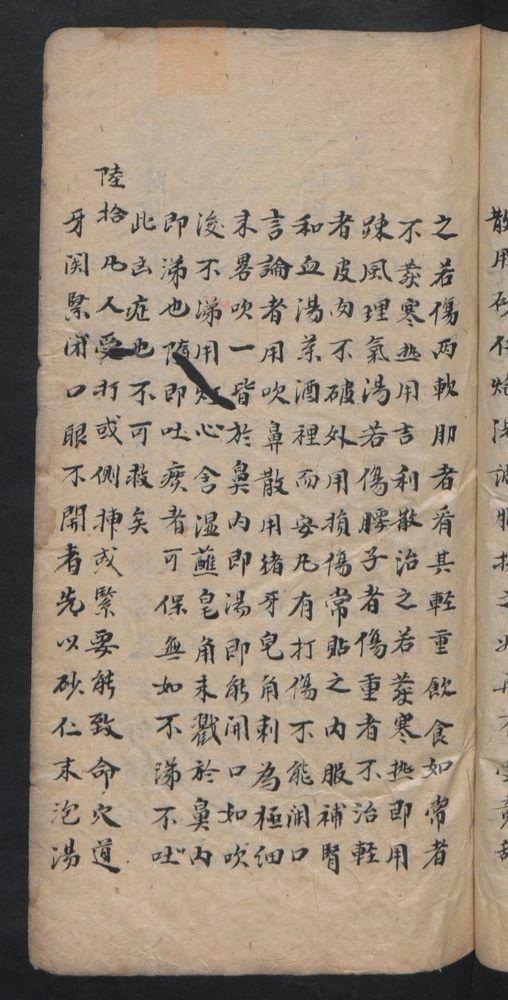 散用砂仁焙
之若傷兩軟肋者看其輕重飲食如常者
不發寒熱用吉利散治之若發寒热即用
踈風理氣湯若傷膀子者傷重者不治輕
者皮肉不破外用損傷常貼之內服補腎
和血湯茶酒裡而安凡有打傷不能開口
言論者用吹鼻散用猪牙皂角刺為極細
末畧吹一皆於鼻內即湯即能開口如吹
後不涕用灯心含湿蘸皂角末戳於鼻內
即涕也随即吐痰者可保無如不涕不吐
此凶症也不可救矣
陸拾凡人受打或側挿或緊要能致命穴道
牙関緊闭口眼不開者先以砂仁末泡湯